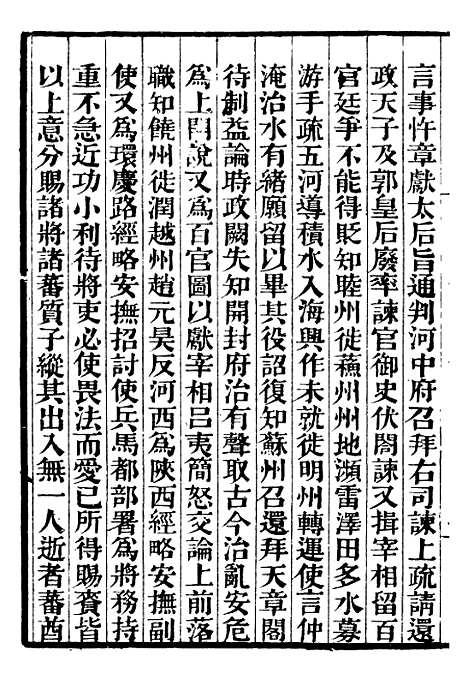 言事忤章獻太后旨通判河中府召拜右司諫上疏請還
政天子及郭皇后廢率諫官御史伏閤諫又揖宰相留百
官廷爭不能得貶知睦州徙蘇州州地瀕雷澤田多水募
游手疏五河導積水入海興作未就徙明州轉運使言仲
淹治水有緒願留以畢其役詔復知蘇州召還拜天章閣
待制益論時政闕失知開封府治有聲取古今治亂安危
爲上開說又爲百官圖以獻宰相呂夷簡怒交論上前落
職知饒州徙潤越州趙元昊反河西爲陝西經略安撫副
使又爲環慶路經略安撫招討使兵馬都部署爲將務持
重不急近功小利待將吏必使畏法而愛已所得賜賚皆
以上意分賜諸將諸蕃質子縱其出入無一人逝者蕃酋